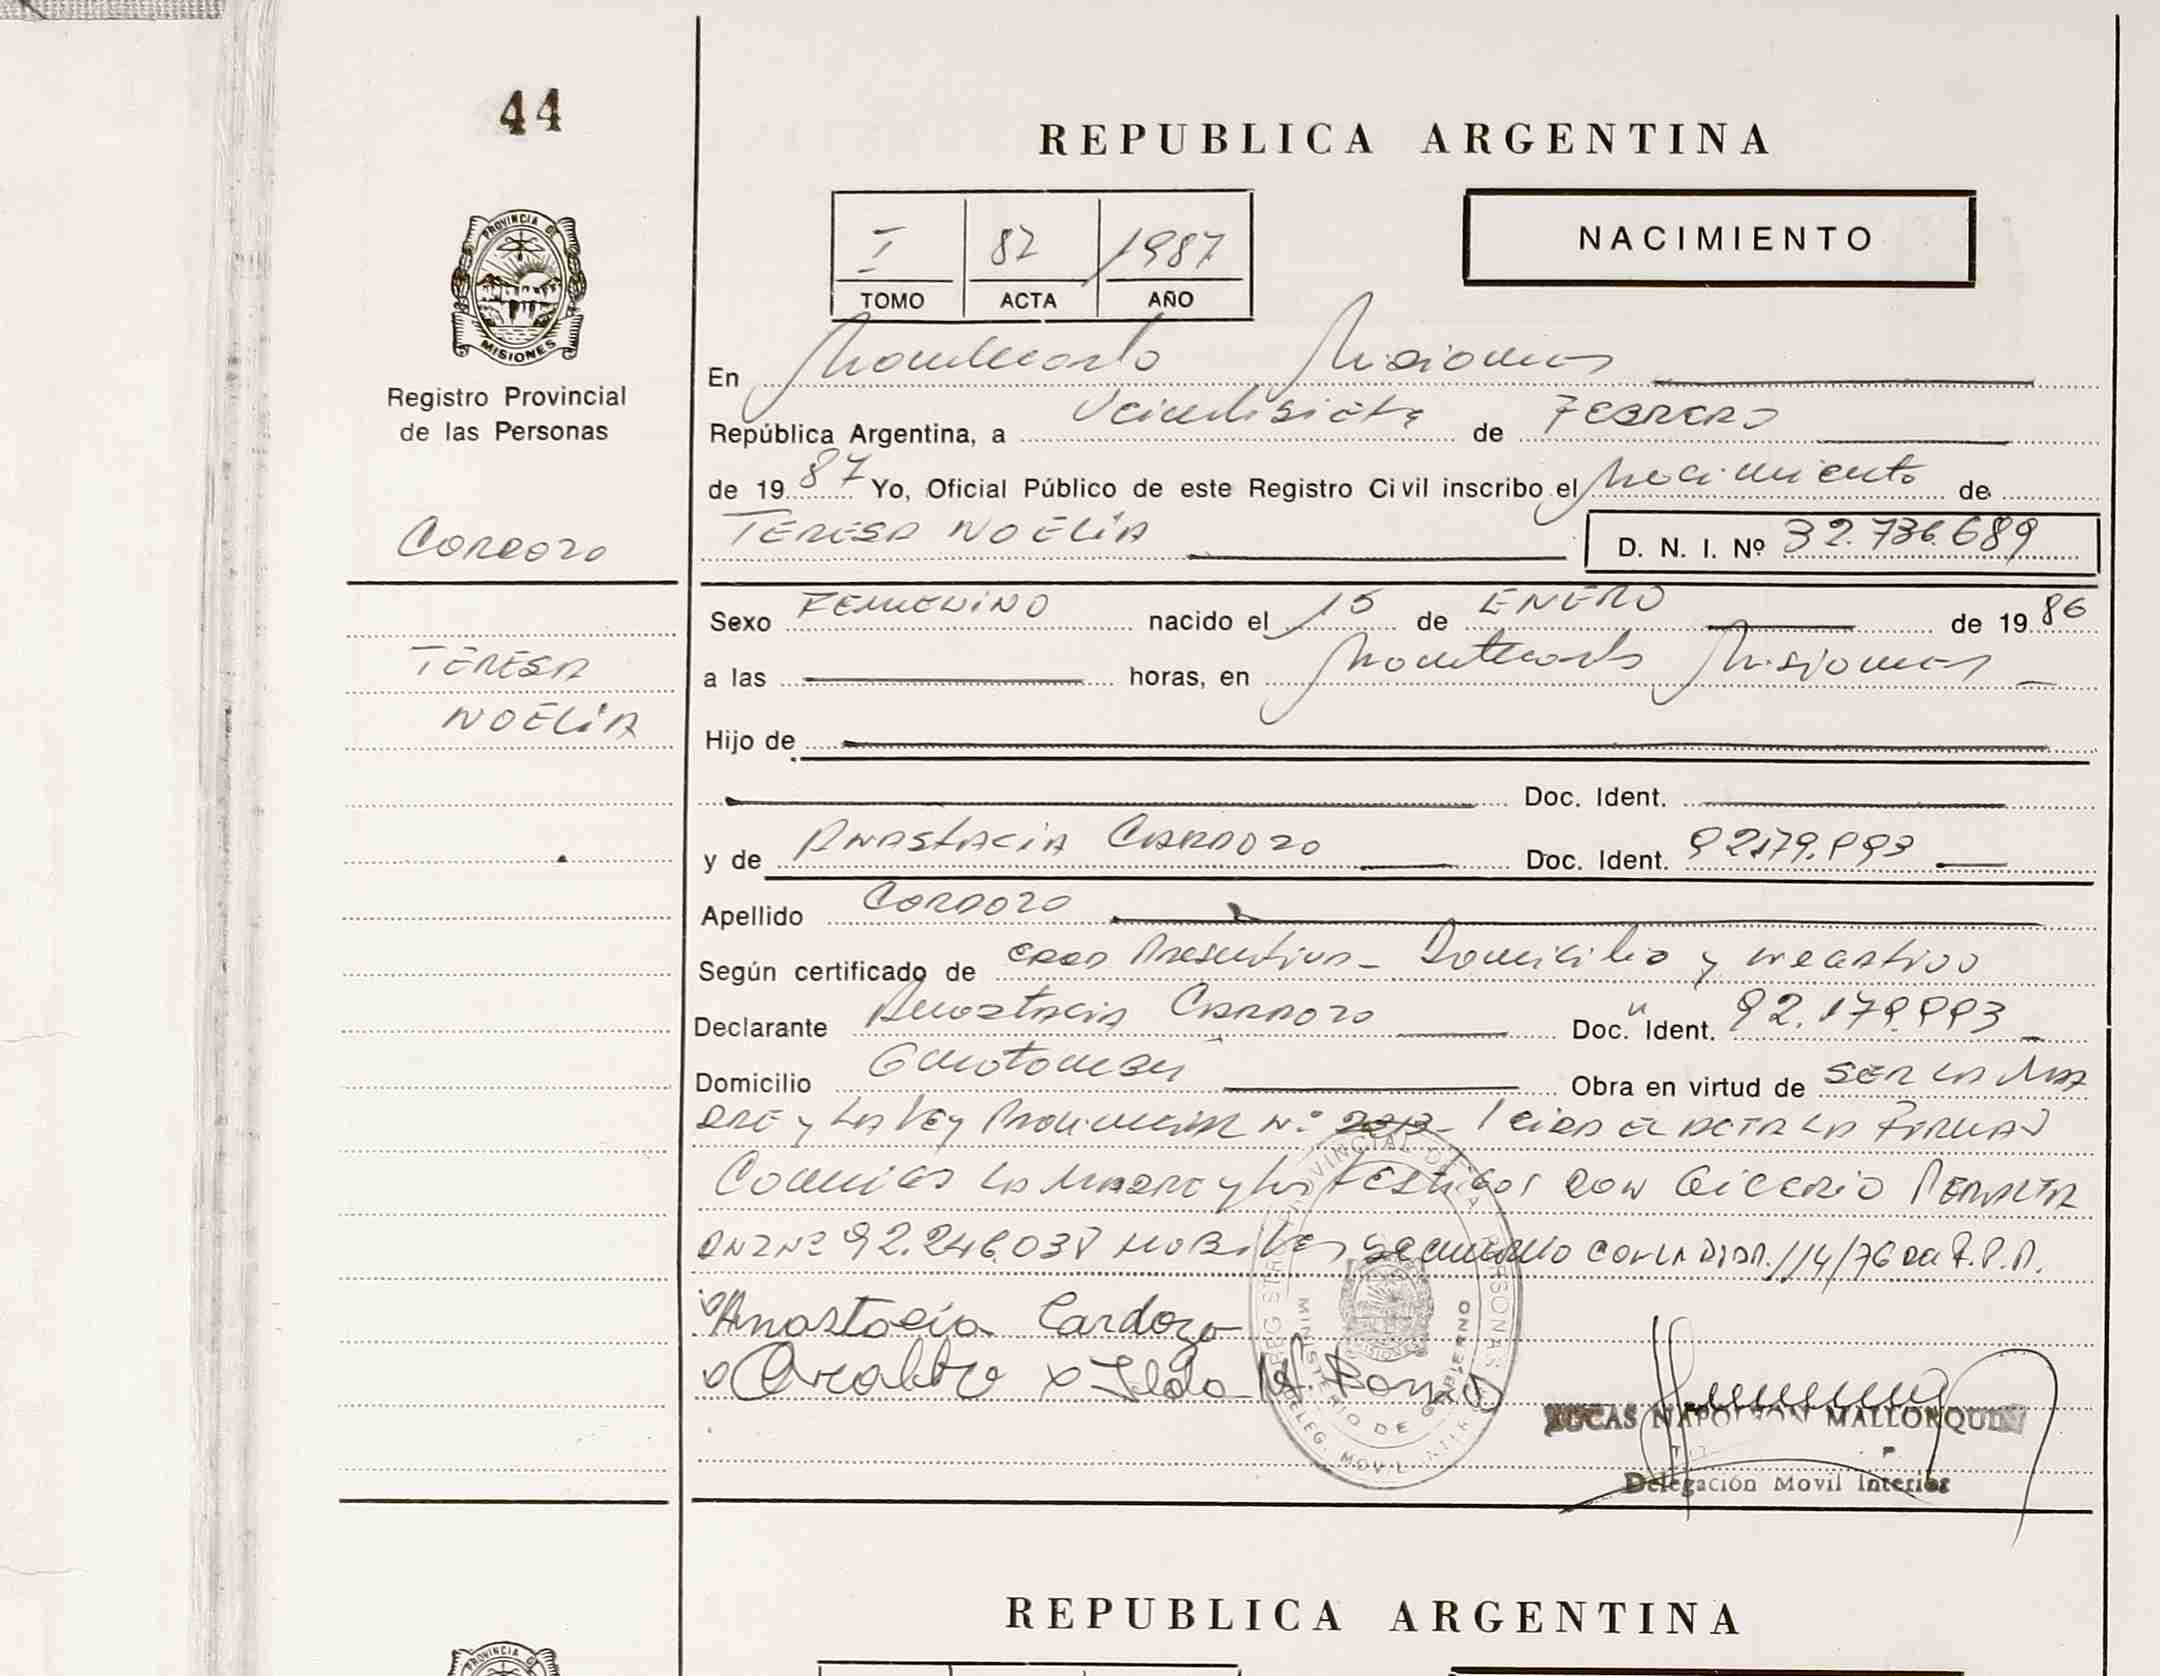 44
REPUBLICA ARGENTINA
I 82 1987
TOMO ACTA AÑO
NACIMIENTO
PROVINCIA DE
MISIONES
Registro Provincial
de las Personas
Cardozo
TERESA
NOELIA
En Montecarlo Misiones
República Argentina, a Veintisiete de FEBRERO
de 1987 Yo, Oficial Público de este Registro Civil inscribo el Nacimiento de
TERESA NOELIA D. N. I. Nº 32.736.689
Sexo FEMENINO nacido el 15 de ENERO de 1986
a las horas, en Montecarlo Misiones
Hijo de
Doc. Ident.
y de ANASTACIA CARDOZO Doc. Ident. 92179.993
Apellido CARDOZO
Según certificado de Domicilio y negativo
Declarante Anastacia CARDOZO Doc. Ident. 92.179.993
Domicilio Obra en virtud de SER LA MA
DRE y LA LEY PROVINCIAL Nº LEIDA EL ACTA LA FIRMAN
CONMIGO LA MADRE y los TESTIGOS DON PERALTA
92.246.03 CON LA DISP. 114/76 R.P.P.
Anastacia Cardozo
LUCAS NAPOLEON MALLORQUIN
Delegación Movil Interior
MINISTERIO DE GOBIERNO
REPUBLICA ARGENTINA
PROVINCIA DE